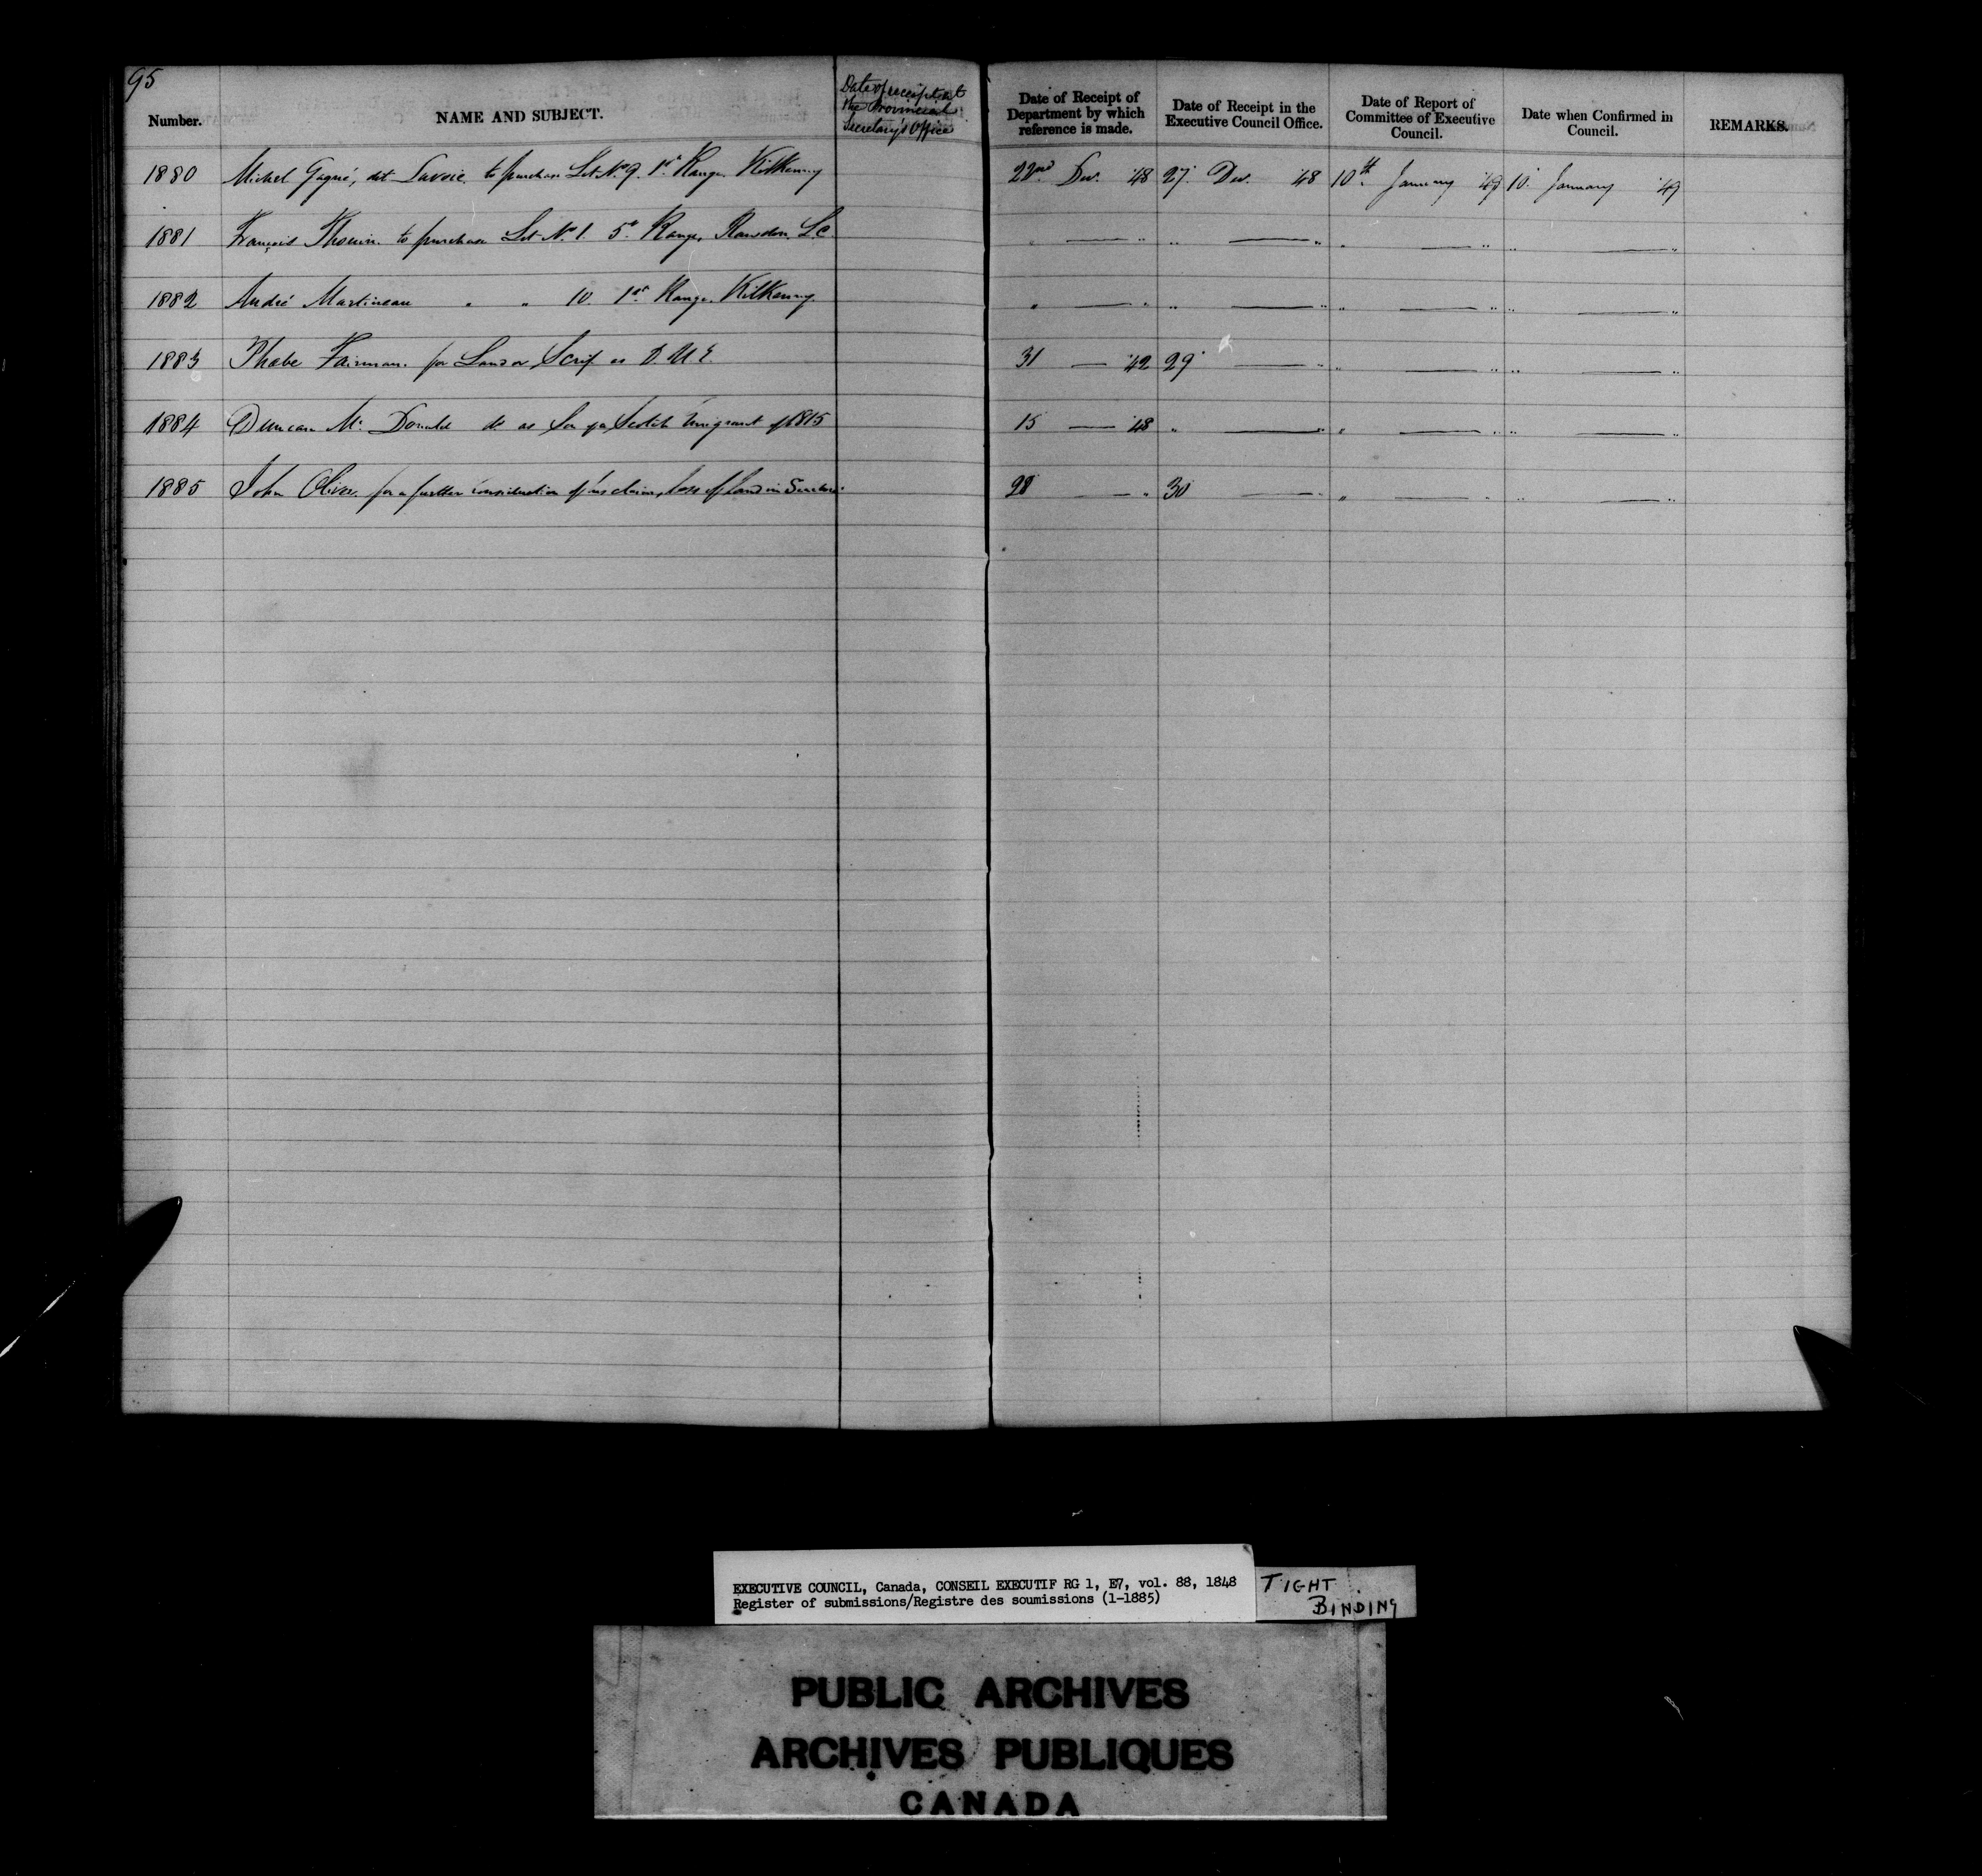 95
Number. NAME AND SUBJECT. Date of receipt at the Provincial Secretary's Office Date of Receipt of Department by which reference is made. Date of Receipt in the Executive Council Office. Date of Report of Committee of Executive Council. Date when Confirmed in Council. REMARKS.
1880 Michel Gagné, dit Lavoie to purchase Lot No. 9. 1st Range Kilkenny 22nd Dec. '48 27. Dec. '48 10th January '49 10. January '49
1881 François Thouin to purchase Lot No. 1. 5th Range, Rawdon. L.C. " — " " — " " — " " — "
1882 André Martineau " " 10. 1st Range. Kilkenny. " — " " — " " — " " — "
1883 Phabe Fairman. for Land or Scrip as D.U.E. 31 — '42 29 — " " — " " — "
1884 Duncan Mc Donald do as Son of a Scotch Emigrant of 1815 15 — '48 " — " " — " " — "
1885 John Oliver for a further consideration of his claim, loss of land in 28 — " 30 — " " — " " — "
EXECUTIVE COUNCIL, Canada, CONSEIL EXECUTIF RG 1, E7, vol. 88, 1848
Register of submissions/Registre des soumissions (1-1885)
TIGHT
BINDING
PUBLIC ARCHIVES
ARCHIVES PUBLIQUES
CANADA